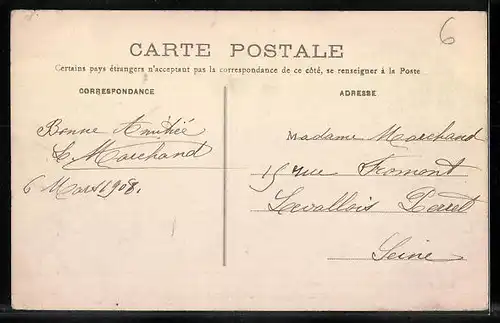 6
CARTE POSTALE
Certains pays étrangers n'acceptant pas la correspondance de ce côté, se renseigner à la Poste
CORRESPONDANCE
ADRESSE
Bonne Amitiée
L. Marchand
6 Mars 1908.
Madame Marchand
15 rue Fromont
Levallois Perret
Seine